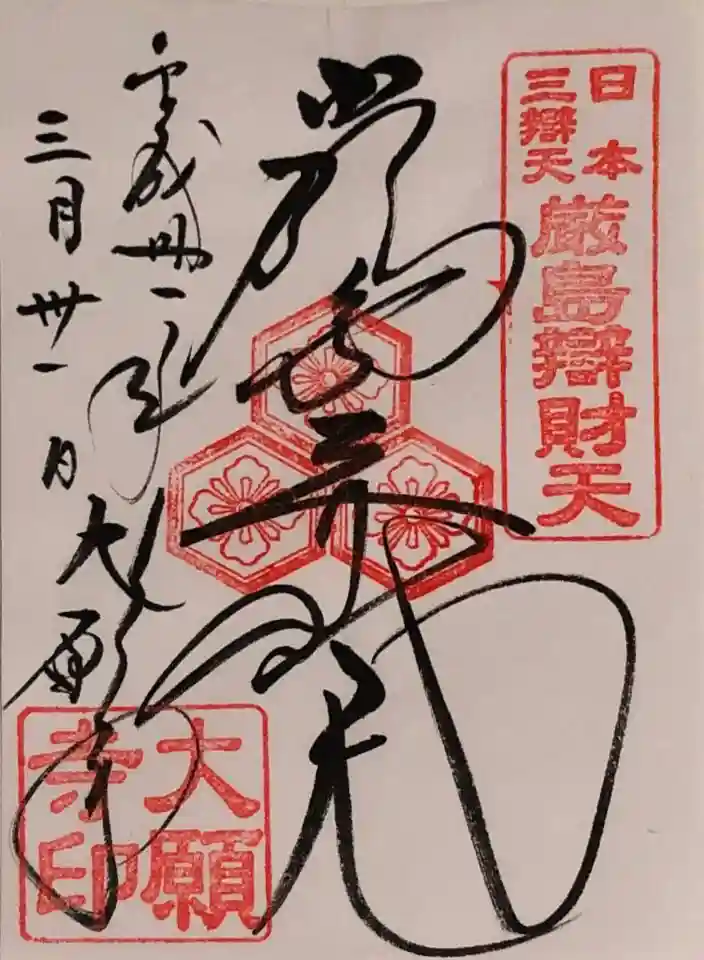 日本
三辯天
厳島辯財天
厳島弁財天
平成卅一年
三月卅一日
大願寺
大願
寺印